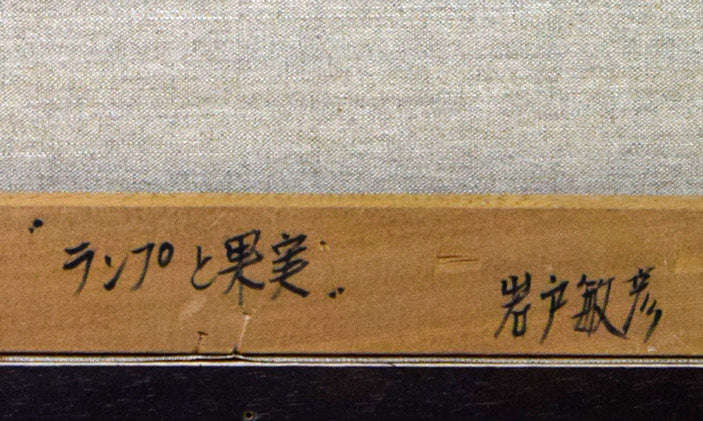 "ランプと果実" 岩戸敏彦